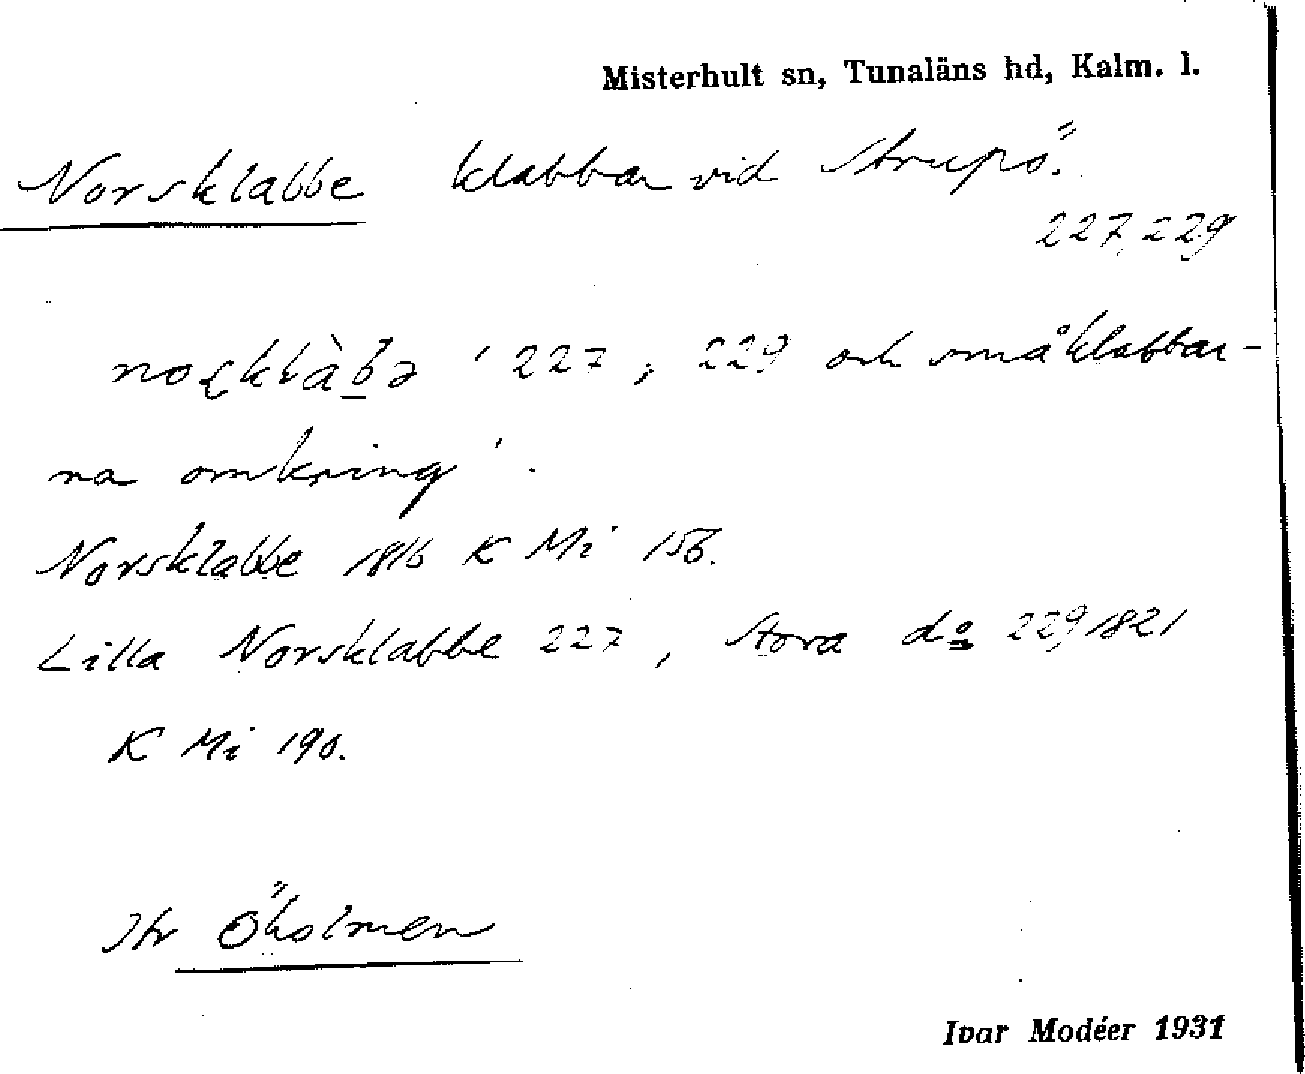 Misterhult sn, Tunaläns hd, Kalm. l.
Norsklabbe klabbar vid Strupö.
227, 229
' 227, 229 och småklabbar-
na omkring'.
Norsklabbe 1816 K Mi 156.
Lilla Norsklabbe 227, Stora do 229 1821
K Mi 190.
Str Öholmen
Ivar Modéer 1931